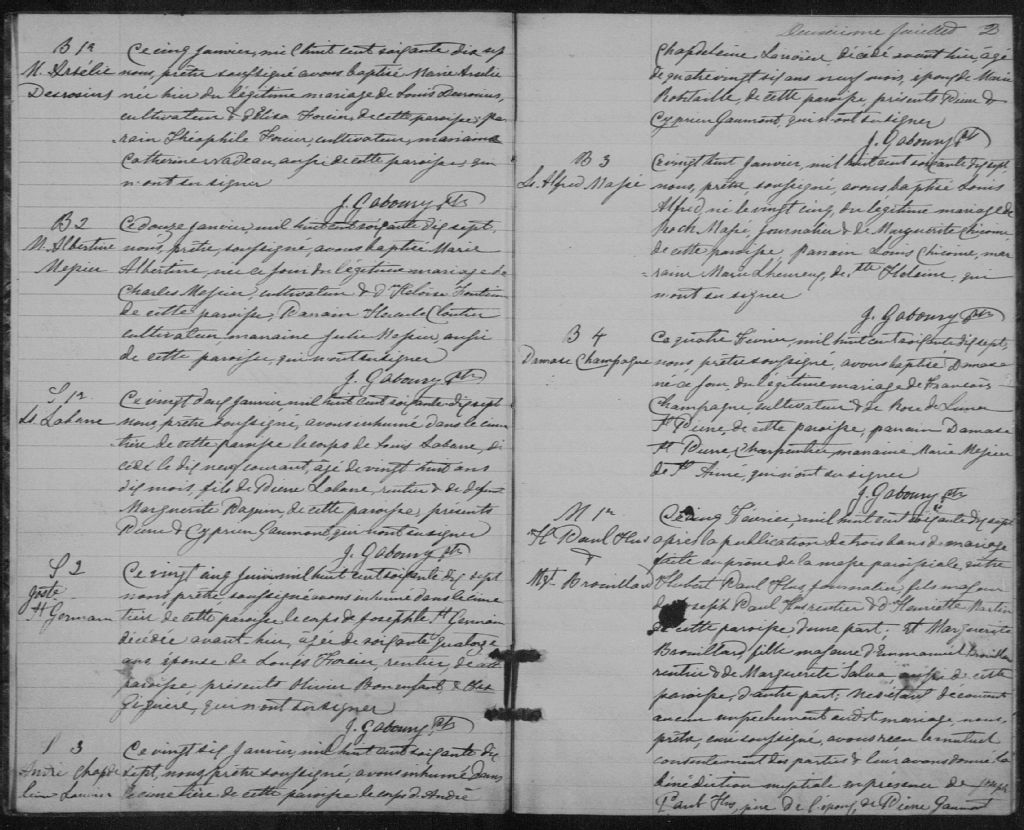 B 1re
M. Arsélie
Desrosiers
Ce cinq janvier, mil huit cent soixante dix sept
nous, prêtre soussigné avons baptisé Marie Arselie
née hier du légitime mariage de Louis Desrosiers,
cultivateur & d'Elisa Forcier, de cette paroisse; pa-
rain Théophile Forcier, cultivateur, maraine
Catherine Nadeau, aussi de cette paroisse, qui
n'ont su signer
J. Gaboury Ptre
B 2
M. Albertine
Messier
Ce douze janvier, mil huit cent soixante dix sept,
nous, prêtre, soussigné, avons baptisé Marie
Albertine, née ce jour du légitime mariage de
Charles Messier, cultivateur & d'Heloïse
de cette paroisse, Parrain Cloutier
cultivateur, maraine Julie Messier, aussi
de cette paroisse, qui n'ont su signer
J. Gaboury Ptre
S 1re
Ls. Labane
Ce vingt deux janvier, mil huit cent soixante dix sept
nous, prêtre soussigné, avons inhumé dans le cime-
tière de cette paroisse le corps de Louis Labane, dé-
cédé le dix neuf courant, agé de vingt huit ans
dix mois, fils de Pierre Labane, rentier & de
Marguerite de cette paroisse, présents
Pierre & Cyprien Gaumont qui n'ont su signer
J. Gaboury Ptre
S 2
Joste
St Germain
Ce vingt cinq mil huit cent soixante dix sept
nous, prêtre soussigné avons inhumé dans le cime
tière de cette paroisse le corps de Josephte St Germain
décédée avant hier, agée de soixante quatorze
ans, épouse de Louis Forcier, rentier de cette
paroisse, présents Olivier Bonenfant &
Giguère, qui n'ont su signer
J. Gaboury Ptre
S 3
André Chapde
leine Larivière
Ce vingt six Janvier, mil huit cent soixante dix
sept, nous, prêtre soussigné, avons inhumé dans
le cimetière de cette paroisse le corps d'André
Deuxième feuillet 2
Chapdeleine Larivière, décédé avant hier, agé
de quatre vingt six ans neuf mois, époux de Marie
Robitaille, de cette paroisse, présents Pierre &
Cyprien Gaumont, qui n'ont su signer
J. Gaboury Ptre
B 3
Ls. Alfred Massé
Ce vingt huit Janvier, mil huit cent soixante dix sept,
nous, prêtre, soussigné, avons baptisé Louis
Alfred, né le vingt cinq, du légitime mariage de
Roch Massé, journalier & de Marguerite Chicoine
de cette paroisse, Parrain Louis Chicoine, mar-
raine Marie Lheureux, de Ste qui
n'ont su signer
J. Gaboury Ptre
B 4
Damase Champagne
Ce quatre Février, mil huit cent soixante dix sept,
nous, prêtre soussigné, avons baptisé Damase
né ce jour, du légitime mariage de Francois
Champagne, cultivateur & de Rose de Lima
St Pierre, de cette paroisse, parrain Damase
St Pierre, Charpentier, maraine Marie Messier
de St Aimé, qui n'ont su signer
J. Gaboury Ptre
M 1re
Ht Paul Hus
&
Mgt. Brouillard
Ce cinq Février, mil huit cent soixante dix sept
après la publication de trois bans de mariage
faite au prône de la messe paroissiale, entre
Hubert Paul Hus, journalier, fils majeur
de Joseph Paul Hus rentier & d'Henriette Martin
de cette paroisse d'une part; Et Marguerite
Brouillard, fille majeure d'Emmanuel Brouillard
rentier & de Marguerite Salva, aussi de cette
paroisse, d'autre part; Ne s'étant découvert
aucun empechement audit mariage, nous,
prêtre, curé soussigné, avons recu le mutuel
consentement des parties & leur avons donné la
bénédiction nuptiale en présence de Joseph
Paul Hus, père de l'époux, de Pierre Gaumont